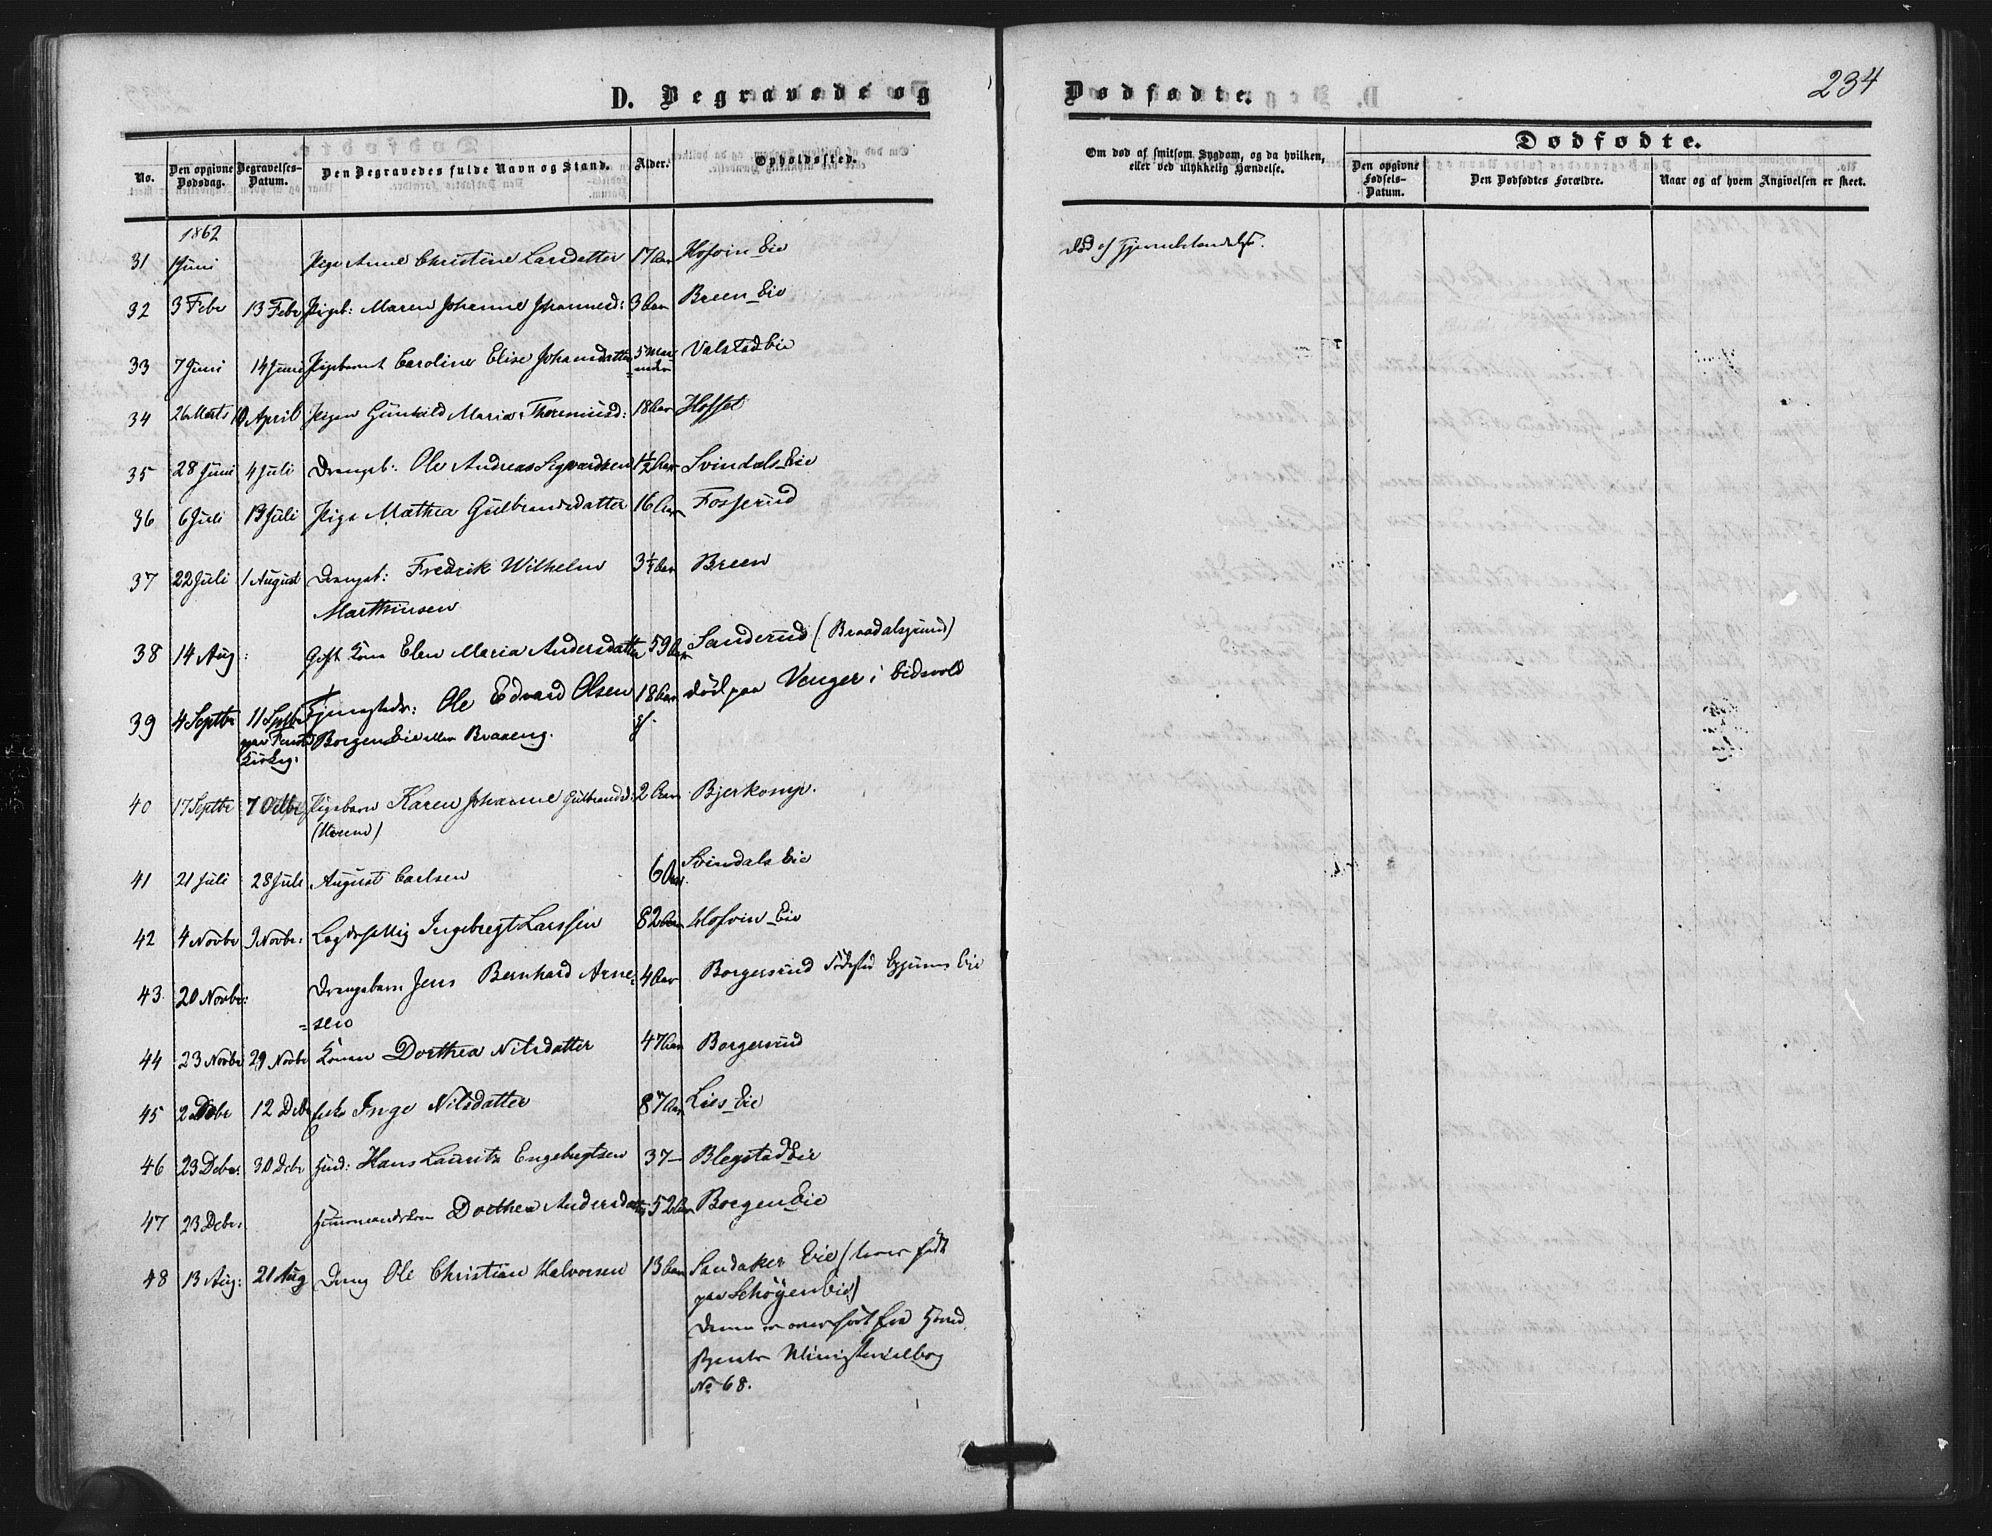 D. Begravede og
Dødfødte.
234
No.
Den opgivne Dødsdag.
Begravelses-Datum.
Den Begravedes fulde Navn og Stand.
Alder.
Opholdssted.
Om død af smitsom Sygdom, og da hvilken, eller ved ulykkelig Hændelse.
Dødfødte.
Den opgivne Fødsels-Datum.
Den Dødfødtes Forældre.
Naar og af hvem Angivelsen er skeet.
1862
31 1 Juni Pige Anne Christine Larsdatter 17 Aar Hofvin Eie død af
32 3 Febr 13 Febr Pigeb: Maren Johanne Johannesd: 3 Aar Breen Eie
33 7 Juni 14 Juni Pigebarnet Caroline Elise Johansdatter 5 Maaneder Valstad Eie
34 26 Marts April Pigen Gunhild Maria 18 Aar Hofset
35 28 Juni 4 Juli Drengeb: Ole Andreas Sigvardsen 1½ Aar Svindals Eie
36 6 Juli 13 Juli Pige Mathea Gulbrandsdatter 16 Aar Fosserud
37 22 Juli 1 August Drengeb: Fredrik Wilhelm 3¼ Aar Breen
Marthinsen
38 14 Aug: Gift Kone Elen Maria Andersdatter 59 Aar Sanderud (Braadalsgrund)
39 4 Septbr 11 Septbr Ole Edvard Olsen 18 Aar død paa Venger i Eidsvold
paa Kirkeg: Borgen Eie eller Braaeng. gl.
40 17 Septbr 7 Octbr Pigebarn Karen Johanne Gulbrandsd: 2 Aar Bjerkomp.
41 21 Juli 28 Juli August Carlsen 6 Aar. Svindals Eie
42 4 Novbr 9 Novbr: Lægdsfattig Ingebregt Larssen 82 Aar Hofvin Eie
43 20 Novbr: Drengebarn Jens Bernhard Arne- 4 Aar Borgersrud Fødested Eie
=sen
44 23 Novbr 29 Novbr Konen Dorthea Nilsdatter 47 Aar Borgersrud
45 2 Debr 12 Debr Enke Inge Nilsdatter 87 Aar Lies Eie
46 23 Debr: 30 Debr Hans Lauritz Engebregtsen 37 – Blegstad Eie
47 23 Debr: Huusmandskone Dorthea Andersdatter 52 Aar Borgen Eie
48 13 Aug: 21 Aug Dreng Ole Christian Halvorsen 13 Aar Sandaker Eie (hvor født
paa Schøyen Eie)
Denne er overført fra Hoved
Ministerialbog
No 68.